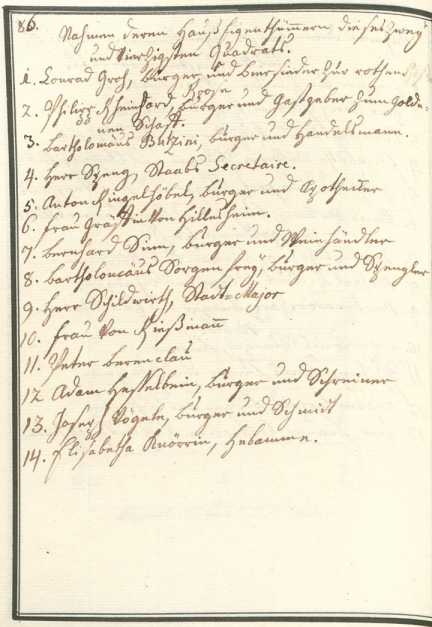 86.
Nahmen deren Haußeigenthümmern dieses Zwey
und Vierzigsten Quadrats.
1. Conrad Groh, Bürger und Biersieder zur rothen
Rose
2. Philipp Rheinhard, Bürger und Gastgeber zum Golde-
nen Schaf.
3. Bartholomäus Butzini, Bürger und Handelsmann.
4. Herr Szeng, Staabs Secretaire.
5. Anton Ringelhöbel, Bürger und Apothecker
6. Frau Gräffin Von Hillesheim.
7. Bernhard Sinn, Bürger und Weinhändler
8. Bartholomäus Sorgenfrey, Bürger und Spengler
9. Herr Schildwirth, Stadt-Major
10. Frau Von Rießmann
11. Peter Berenclau
12. Adam Hesselbein, Bürger und Schreiner
13. Joseph Vögele, Bürger und Schmidt
14. Elisabetha Knörrin, Hebamme.